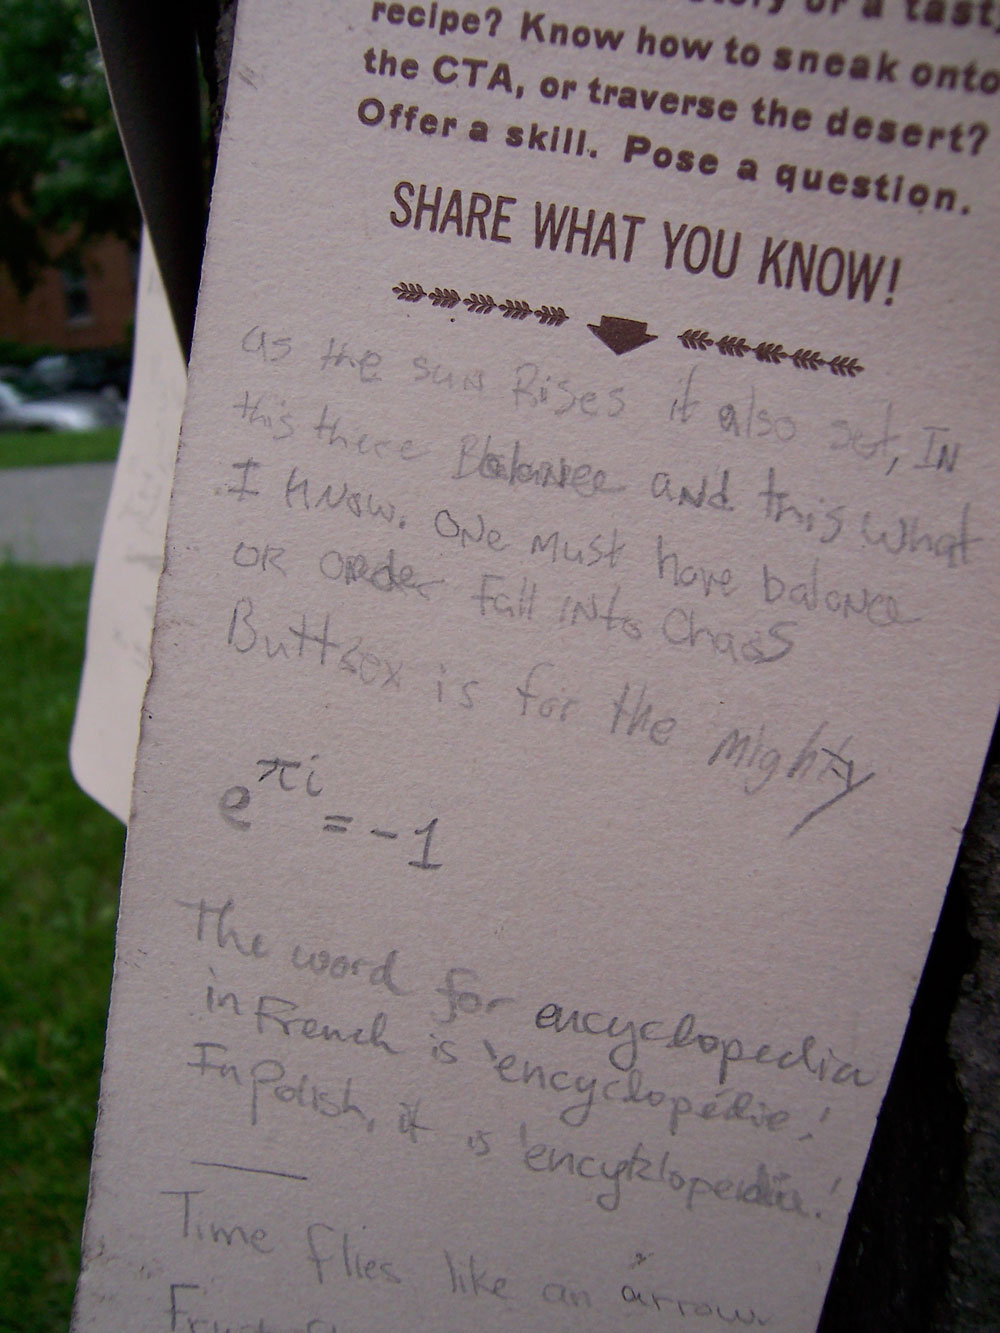 or a tasty
recipe? Know how to sneak onto
the CTA, or traverse the desert?
Offer a skill. Pose a question.
SHARE WHAT YOU KNOW!
as the sun Rises it also set, IN
this there Balance and this what
I know. ONe must have balance
OR order Fall INto Chaos
Buttsex is for the mighty
e^πi = -1
The word for encyclopedia
in French is 'encyclopédie'.
In Polish, it is 'encyklopedia'.
Time flies like an arrow.